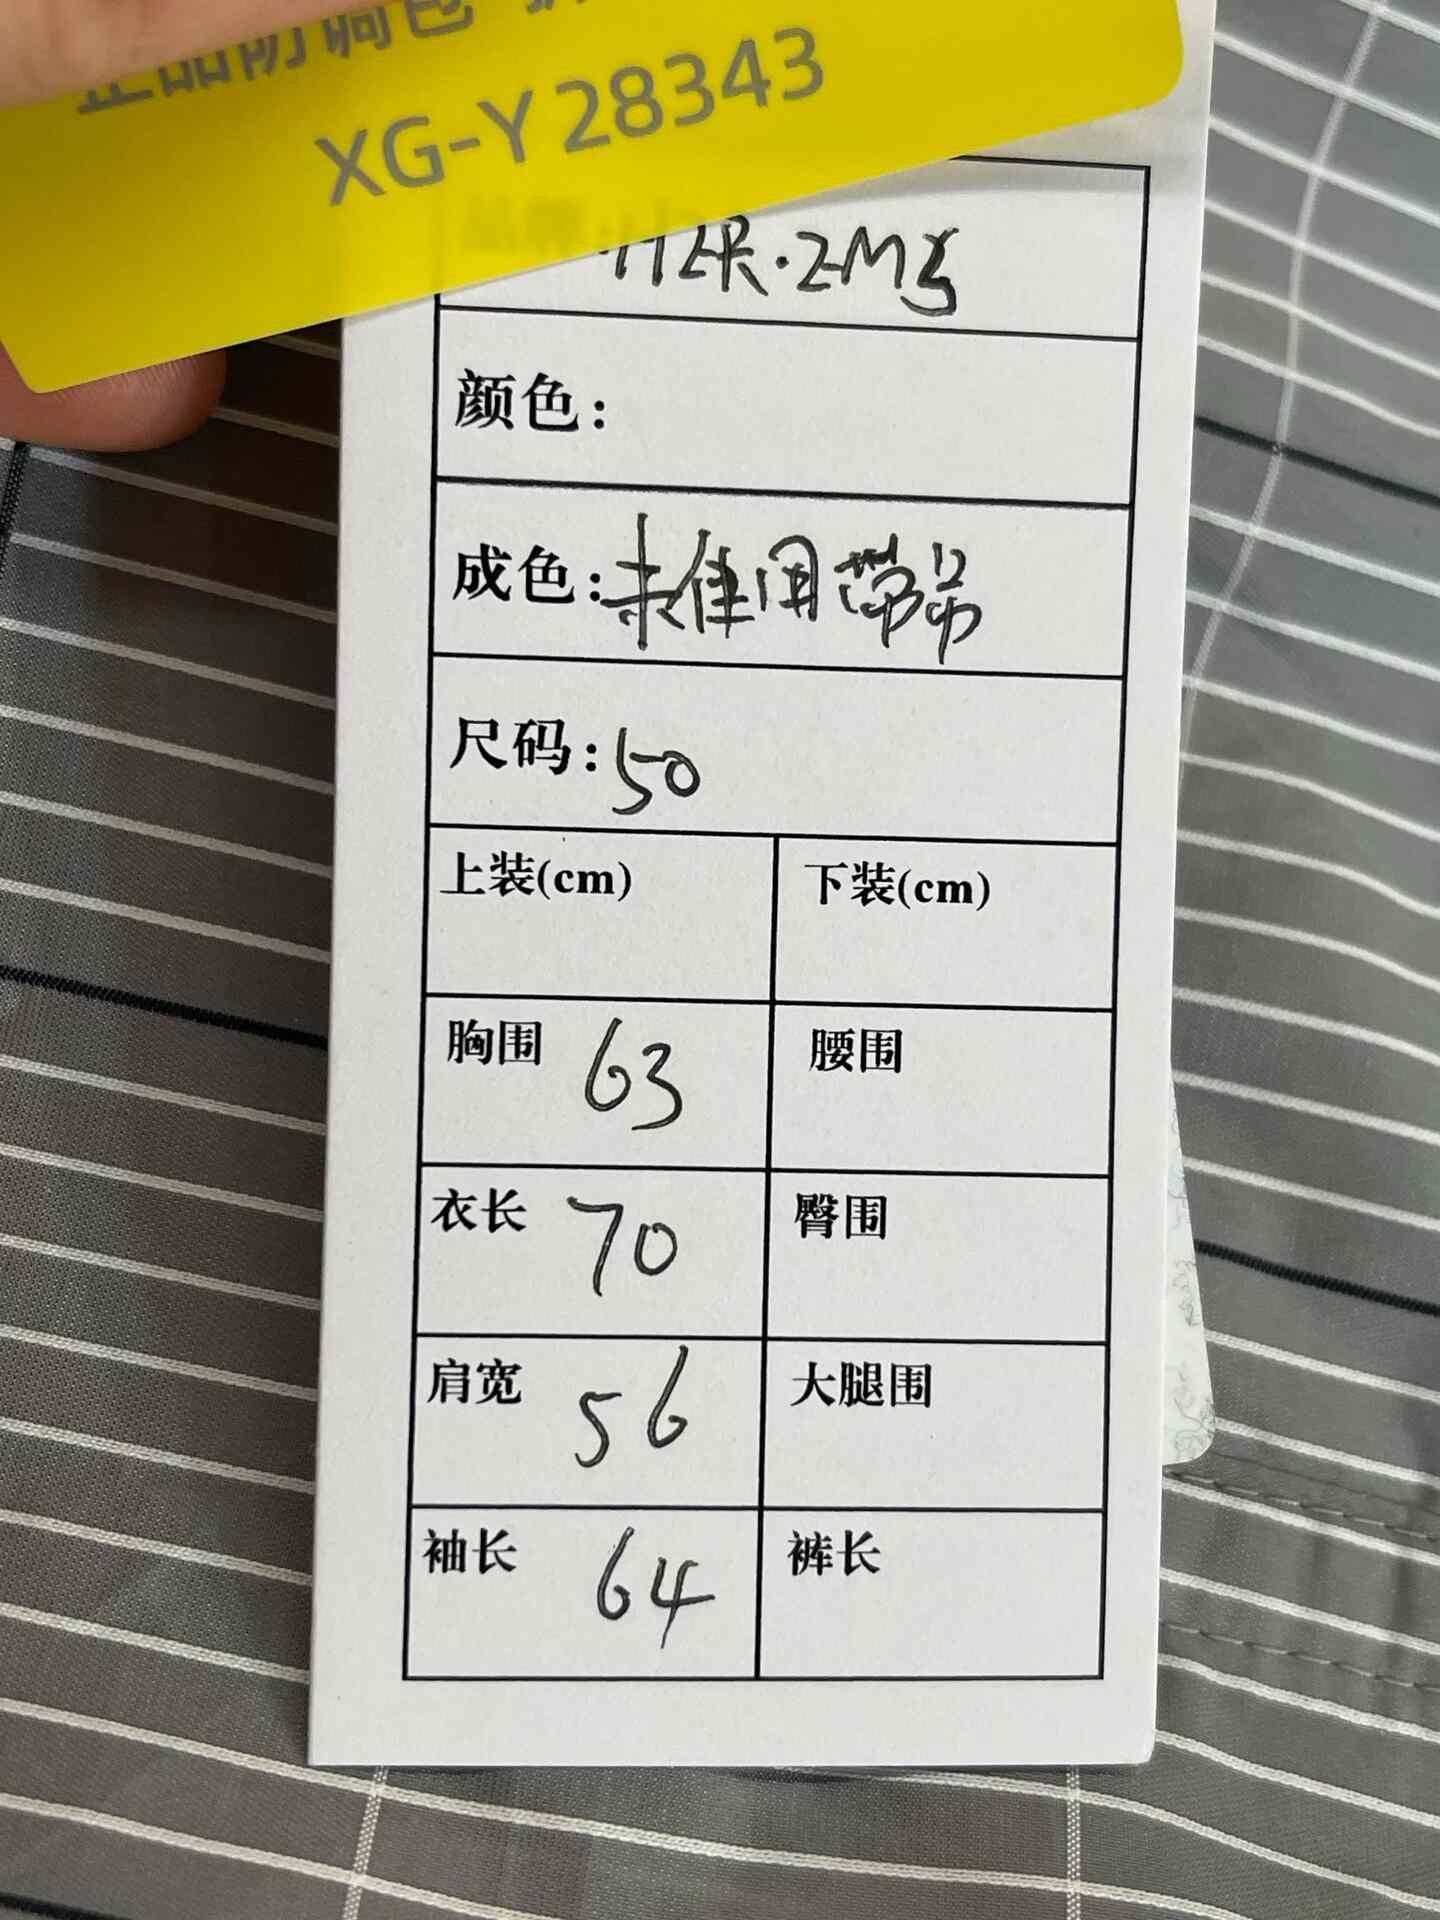 正品防调包
XG-Y28343
颜色:
成色:未使用带吊
尺码:50
上装(cm) 下装(cm)
胸围 63 腰围
衣长 70 臀围
肩宽 56 大腿围
袖长 64 裤长